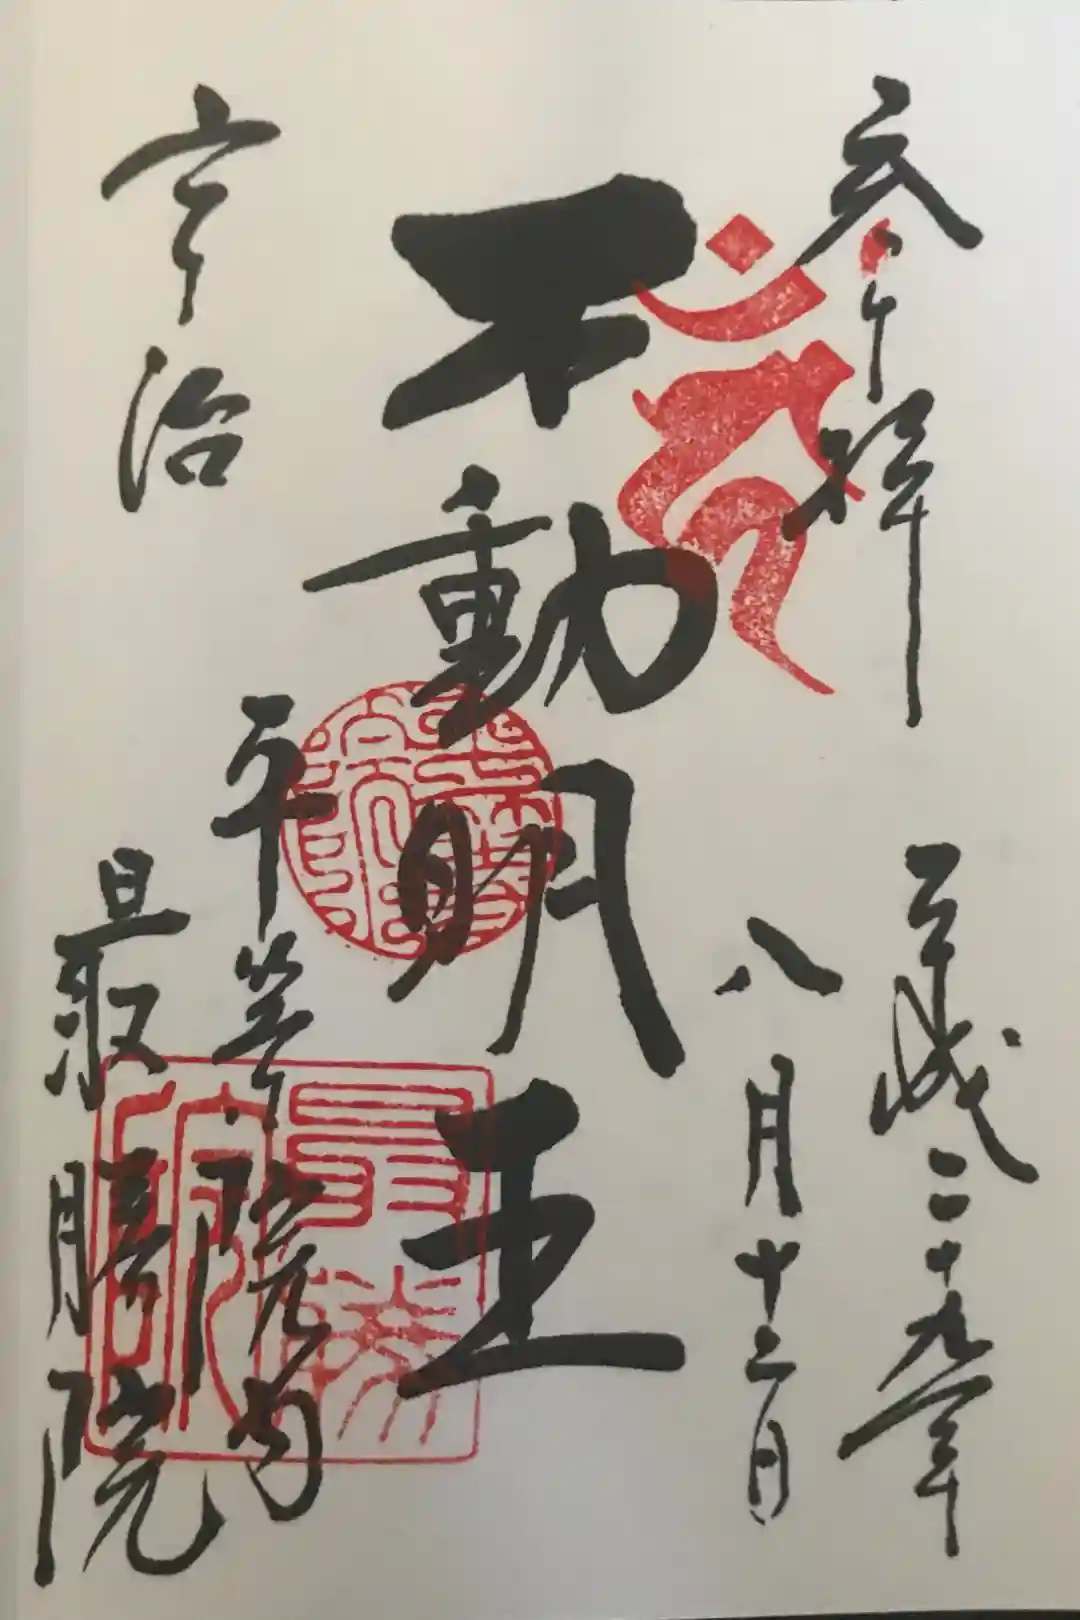 奉拝
平成二十九年
八月十三日
不動明王
宇治
平等院内
最勝院
最勝院